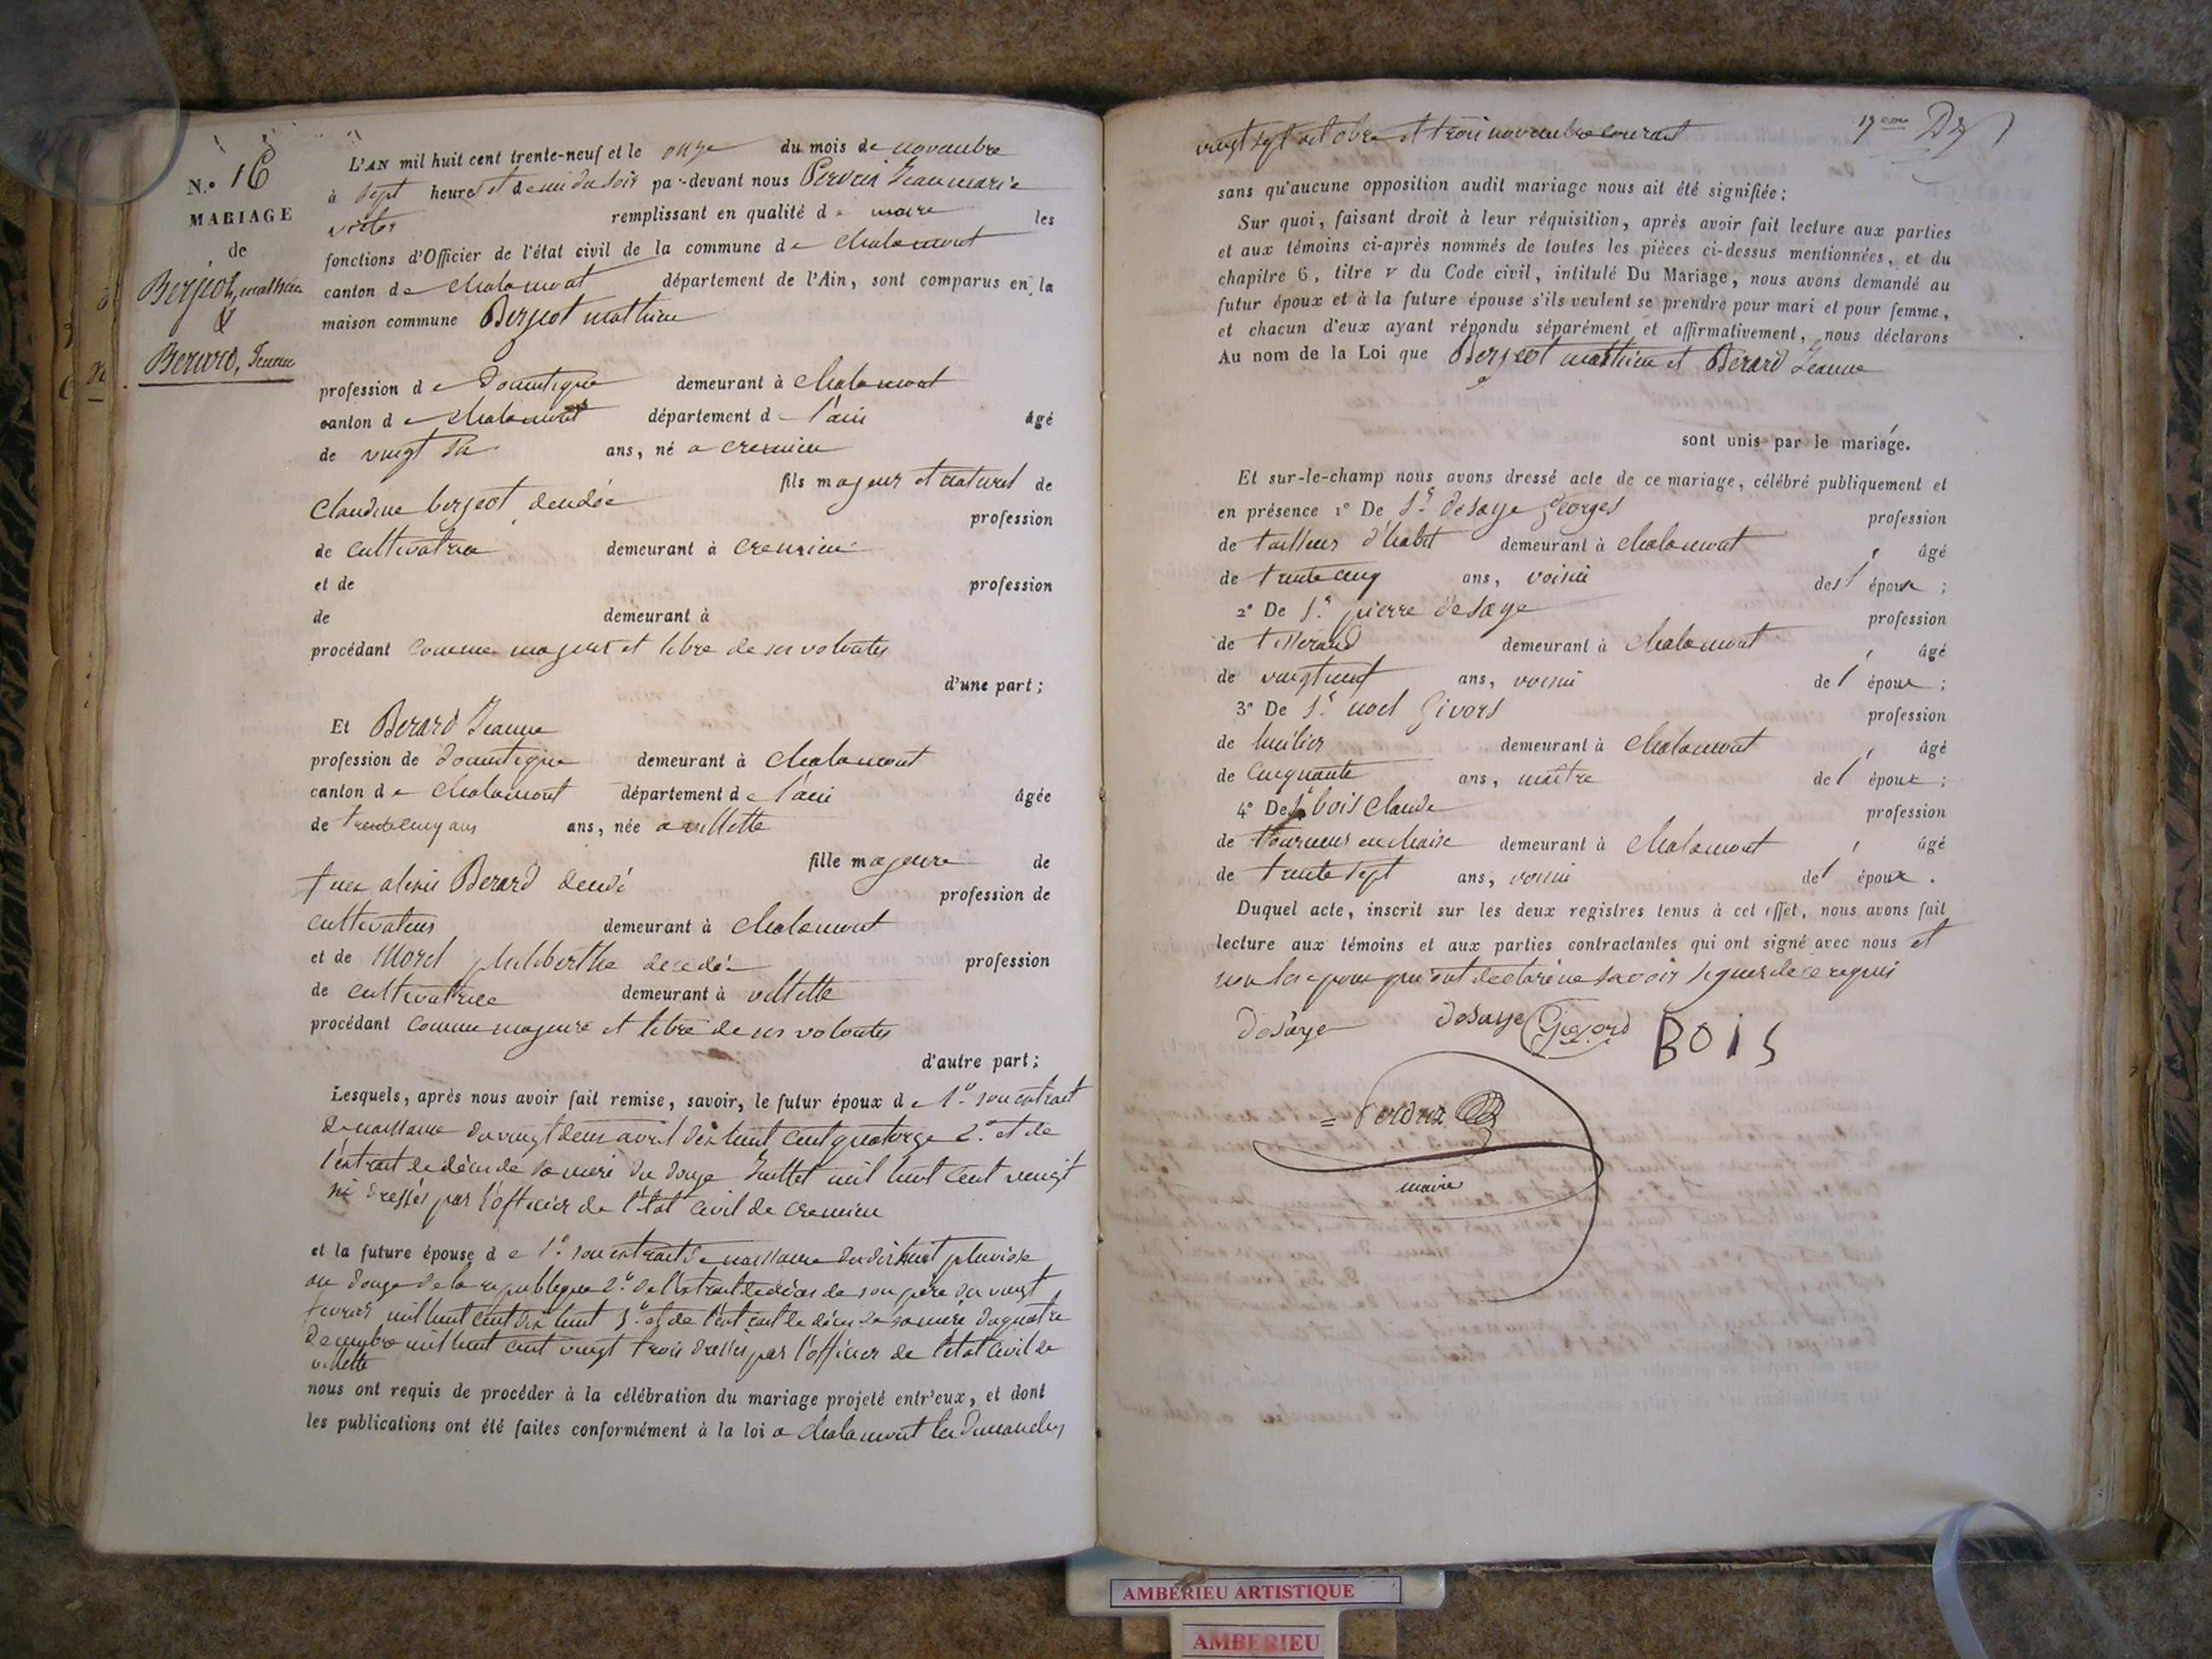 N.º 16
MARIAGE
de
Berjeot, mathieu
&
Berard, Jeanne
L'AN mil huit cent trente-neuf et le onze du mois de novembre
à sept heures et demi du soir par-devant nous Perdrix Jean marie
victor remplissant en qualité de maire les
fonctions d'Officier de l'état civil de la commune de chalamont
canton de chalamont département de l'Ain, sont comparus en la
maison commune Berjeot mathieu
profession de domestique demeurant à chalamont
canton de chalamont département de l'ain âgé
de vingt ans, né a cremieu
fils majeur et naturel de
Claudine berjeot, décédée
profession
de cultivatrice demeurant à cremieu
et de profession
de demeurant à
procédant comme majeur et libre de ses volontés
d'une part ;
Et Berard Jeanne
profession de domestique demeurant à chalamont
canton de chalamont département de l'ain âgée
de trente cinq ans ans, née a villette
fille majeure de
Berard décédé
profession de
cultivateur demeurant à chalamont
et de Morel philiberthe décédée profession
de cultivatrice demeurant à villette
procédant comme majeure et libre de ses volontés
d'autre part ;
Lesquels, après nous avoir fait remise, savoir, le futur époux de 1º son extrait
de naissance du vingt deux avril dix huit cent quatorze 2º et de
l'extrait de décès de sa mère du douze Juillet mil huit cent vingt
six dressés par l'officier de l'état civil de cremieu
et la future épouse de 1º son extrait de naissance du dix huit pluviose
an douze de la republique 2º de l'extrait de décès de son père du vingt
fevrier mil huit cent dix huit 3º et de l'extrait de décès de sa mère du quatre
decembre mil huit cent vingt trois dressés par l'officier de l'état civil de
villette
nous ont requis de procéder à la célébration du mariage projeté entr'eux, et dont
les publications ont été faites conformément à la loi a chalamont les dimanches
19eme
vingt sept octobre et trois novembre courant
sans qu'aucune opposition audit mariage nous ait été signifiée ;
Sur quoi, faisant droit à leur réquisition, après avoir fait lecture aux parties
et aux témoins ci-après nommés de toutes les pièces ci-dessus mentionnées, et du
chapitre 6, titre v du Code civil, intitulé Du Mariage, nous avons demandé au
futur époux et à la future épouse s'ils veulent se prendre pour mari et pour femme,
et chacun d'eux ayant répondu séparément et affirmativement, nous déclarons
Au nom de la Loi que Berjeot mathieu et Bérard Jeanne
sont unis par le mariage.
Et sur-le-champ nous avons dressé acte de ce mariage, célébré publiquement et
en présence 1º De Sr desaye georges profession
de tailleur d'habit demeurant à chalamont, âgé
de trente cinq ans, voisin des époux ;
2º De Sr pierre desaye profession
de tisserand demeurant à chalamont, âgé
de vingt neuf ans, voisin de l'époux ;
3º De Sr noel Givord profession
de huilier demeurant à chalamont, âgé
de cinquante ans, maître de l'époux ;
4º De Sr bois claude profession
de tourneur en chaise demeurant à chalamont, âgé
de trente sept ans, voisin de l'époux.
Duquel acte, inscrit sur les deux registres tenus à cet effet, nous avons fait
lecture aux témoins et aux parties contractantes qui ont signé avec nous et
non les epoux qui ont declaré ne savoir signer de ce requis
desaye desaye Givord BOIS
Perdrix
maire
AMBÉRIEU ARTISTIQUE
AMBERIEU